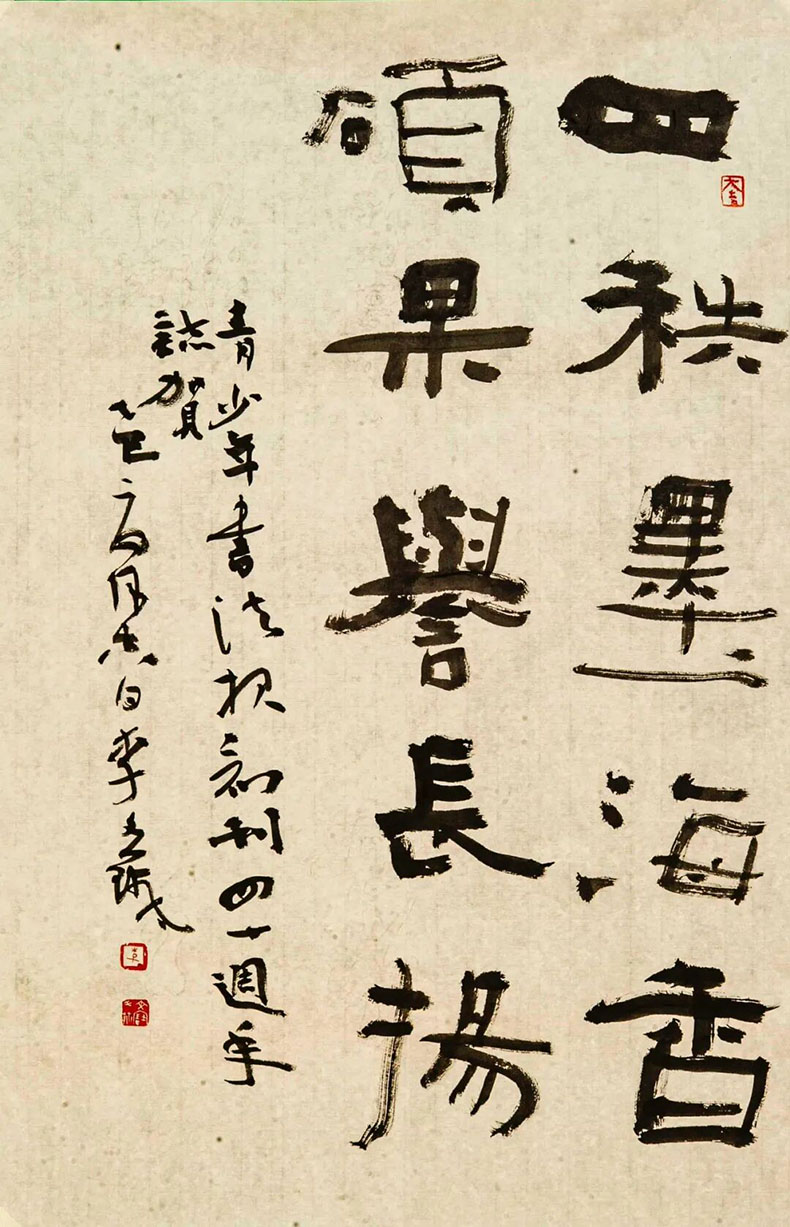 四秩墨海香
碩果譽長揚
青少年書法报创刊四十週年
誌賀
乙巳月吉日李文